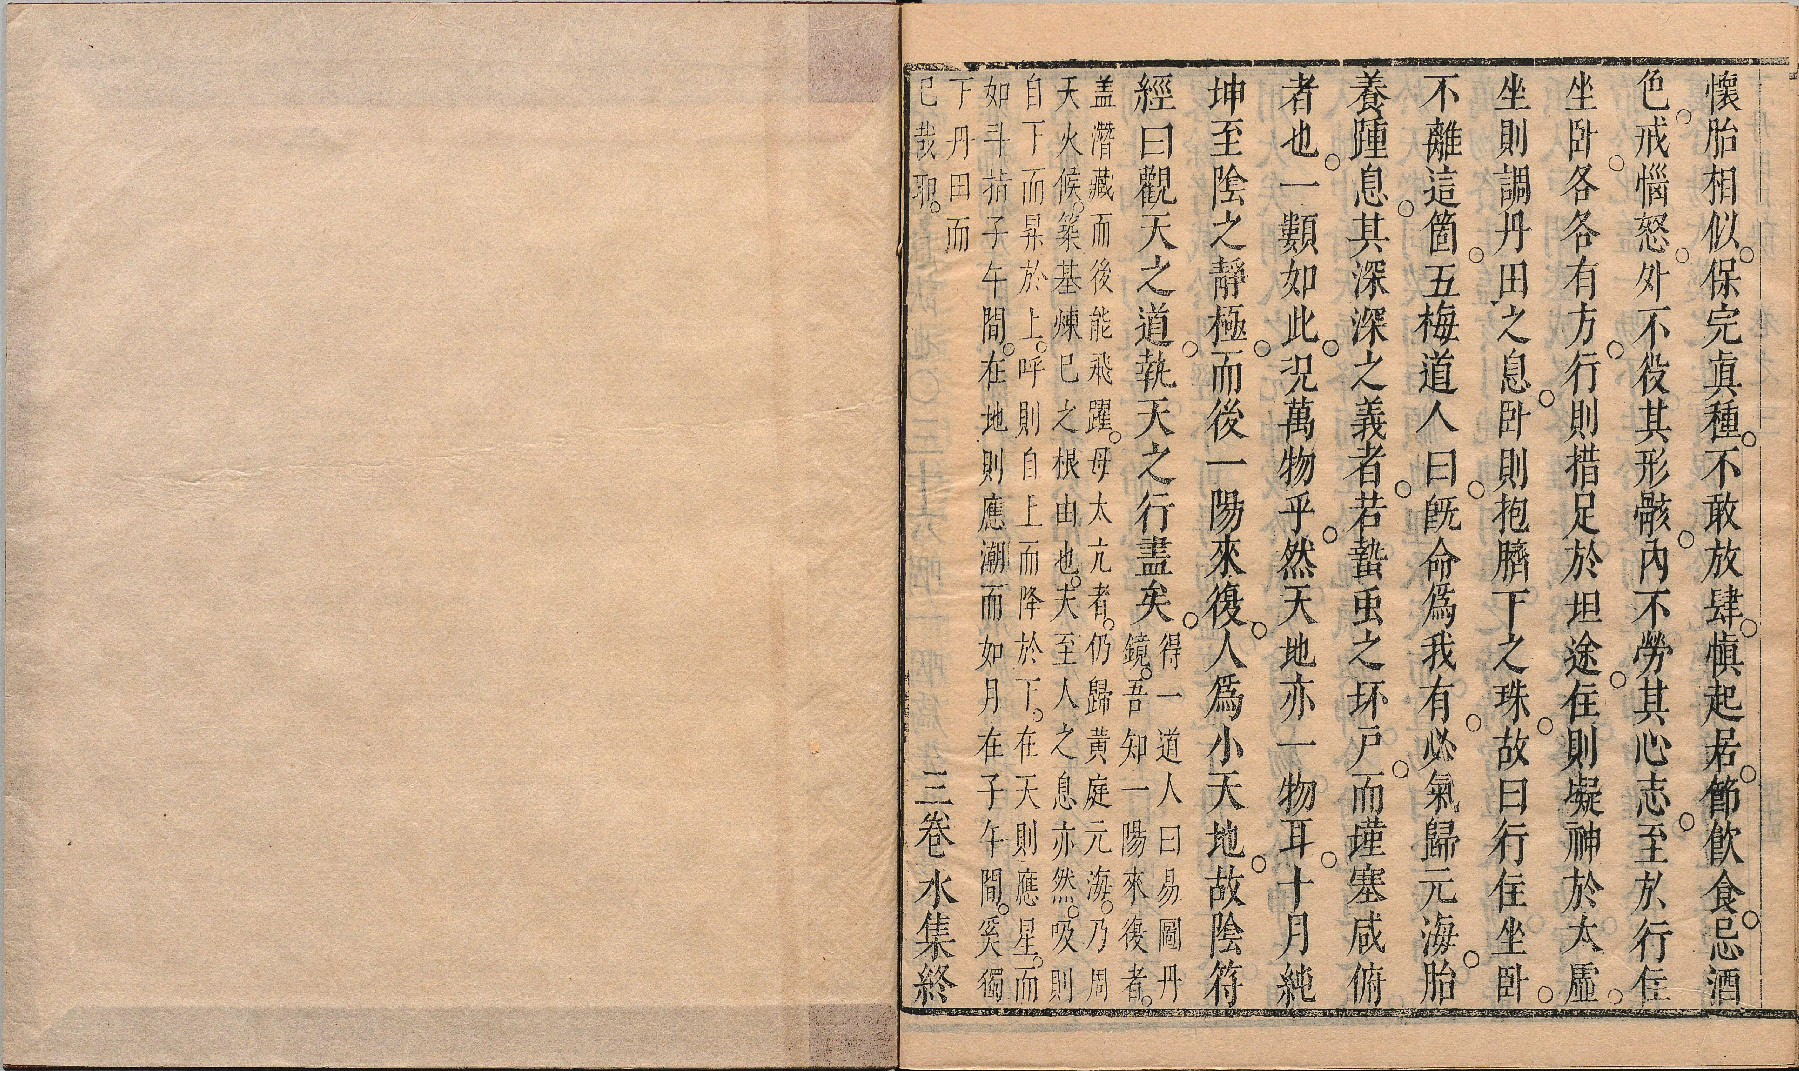 懷胎相似。保完眞種。不敢放肆。愼起居。節飲食。忌酒
色。戒惱怒。外不役其形骸。內不勞其心志。至於行住
坐卧。各各有方。行則措足於坦途。住則凝神於太虛。
坐則調丹田之息。卧則抱臍下之珠。故曰行住坐卧。
不離這箇。五梅道人曰。旣命爲我有。必氣歸元海。胎
養踵息。其深深之義者。若蟄虫之坏戶。而墐塞咸俯
者也。一類如此。况萬物乎。然天地亦一物耳。十月純
坤至陰之靜極。而後一陽來復。人爲小天地。故陰符
經曰觀天之道。執天之行盡矣。
得一道人曰易圖丹
鏡。吾知一陽來復者。
盖潛藏而後能飛躍。母太亢者。仍歸黃庭元海。乃周
天火候。築基煉巳之根由也。夫至人之息亦然。吸則
自下而昇於上。呼則自上而降於下。在天則應星。而
如斗指子午間。在地則應潮而如月在子午間。奚獨
下丹田而
已哉耶。
三卷水集終